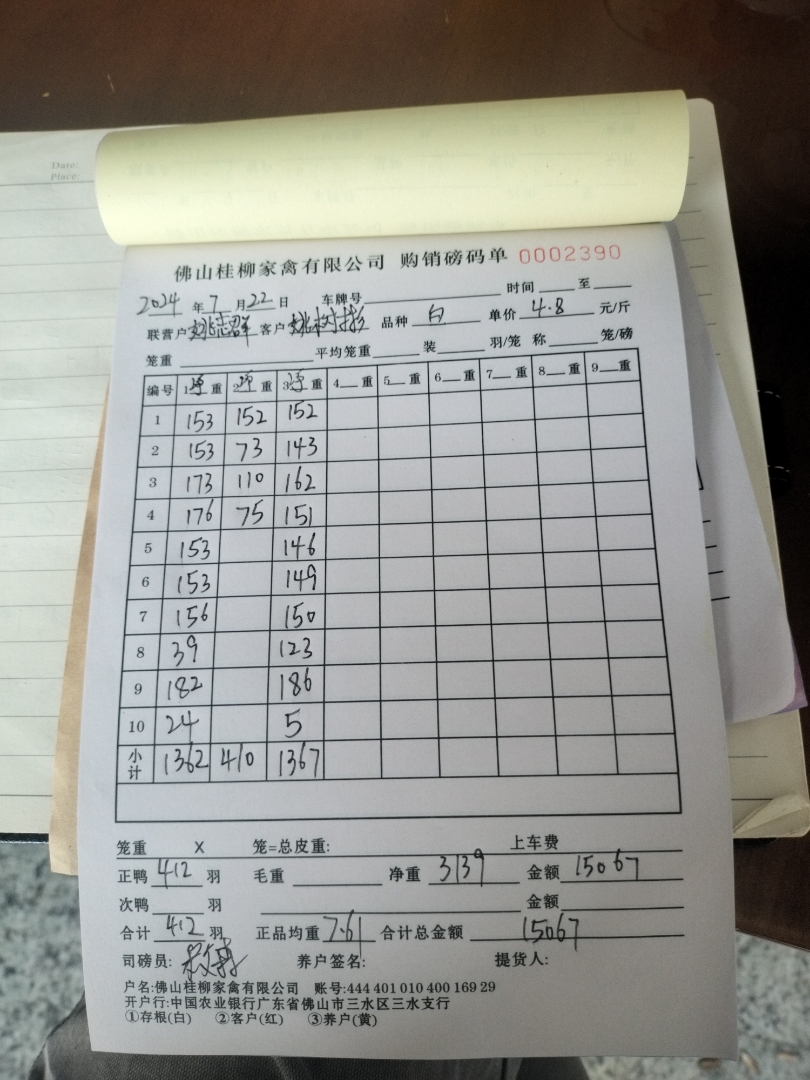 Date:
Place:
佛山桂柳家禽有限公司 购销磅码单 0002390
2024 年 7 月 22 日 车牌号 时间 至
联营户 姚志群 客户 姚树彬 品种 白 单价 4.8 元/斤
笼重 平均笼重 装 羽/笼 称 笼/磅
编号 1净重 2净重 3净重 4重 5重 6重 7重 8重 9重
1 153 152 152
2 153 73 143
3 173 110 162
4 176 75 151
5 153 146
6 153 149
7 156 150
8 39 123
9 182 186
10 24 5
小计 1362 410 1367
笼重 X 笼=总皮重: 上车费
正鸭 412 羽 毛重 净重 3139 金额 15067
次鸭 羽 金额
合计 412 羽 正品均重 7.61 合计总金额 15067
司磅员: 养户签名: 提货人:
户名:佛山桂柳家禽有限公司 账号:444 401 010 400 169 29
开户行:中国农业银行广东省佛山市三水区三水支行
①存根(白) ②客户(红) ③养户(黄)